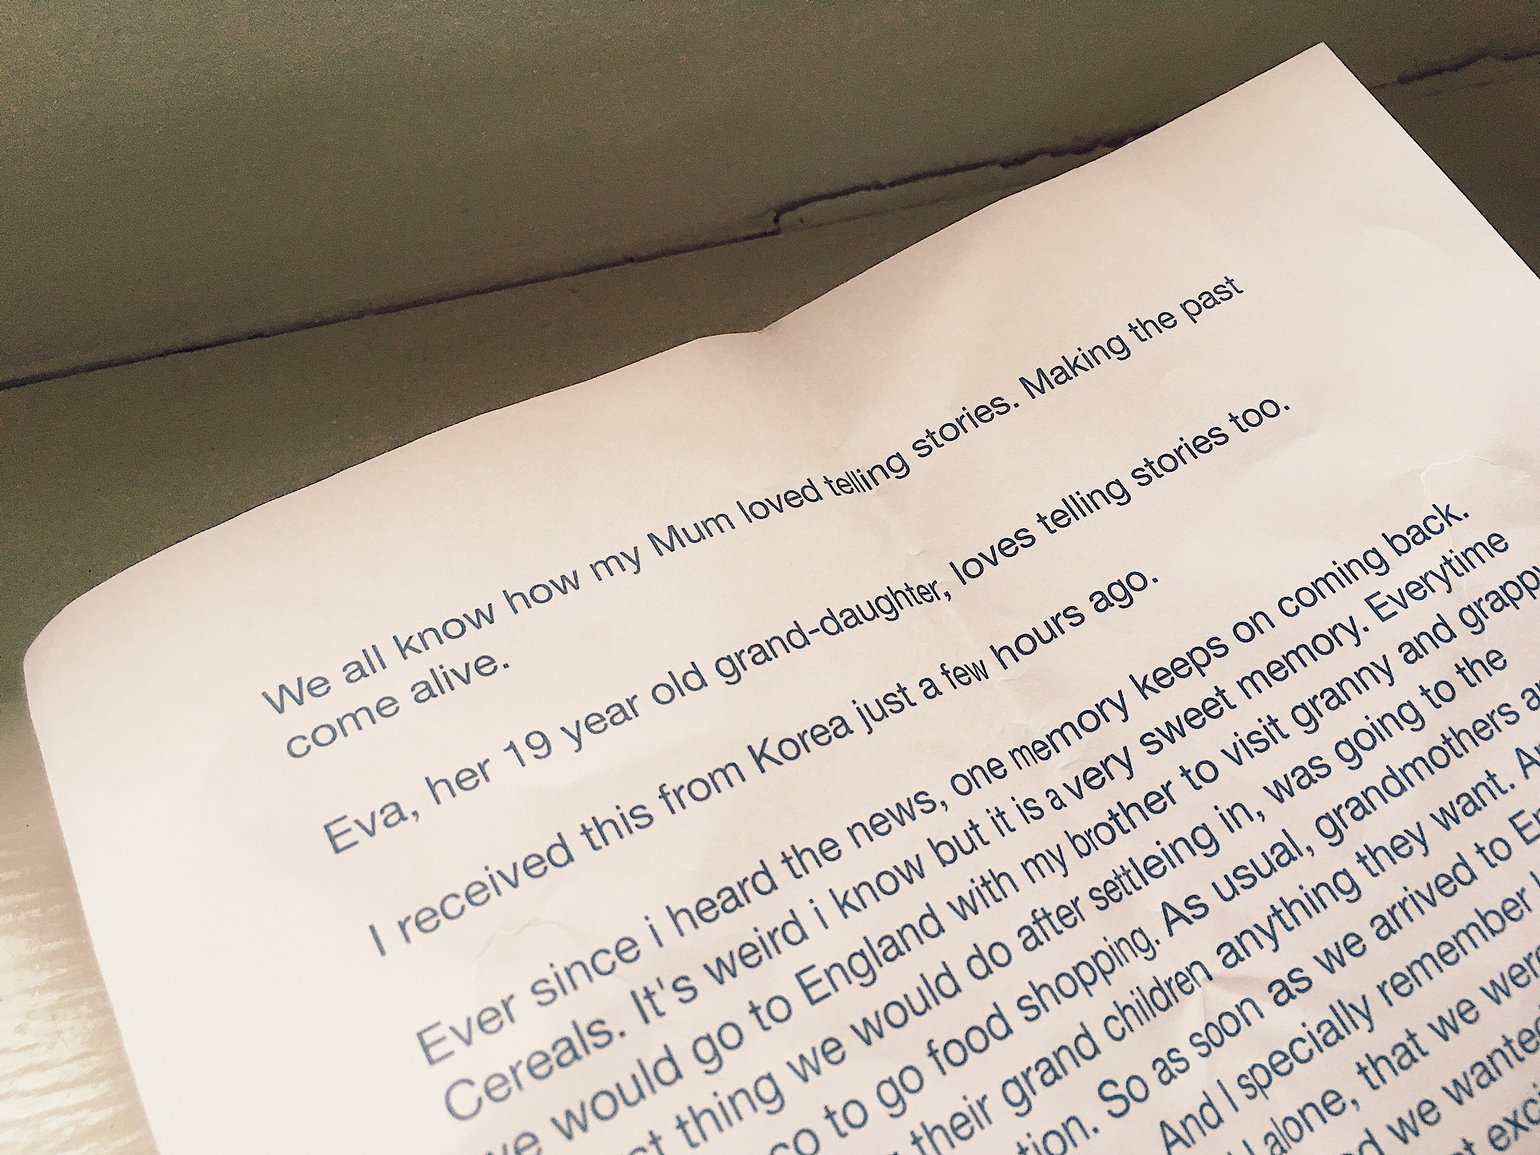 We all know how my Mum loved telling stories. Making the past
come alive.
Eva, her 19 year old grand-daughter, loves telling stories too.
I received this from Korea just a few hours ago.
Ever since i heard the news, one memory keeps on coming back.
Cereals. It's weird i know but it is a very sweet memory. Everytime
would go to England with my brother to visit granny and grappy
thing we would do after settleing in, was going to the
to go food shopping. As usual, grandmothers
their grand children anything they want.
So as soon as we arrived to
And I specially remember
alone, that we were
we wanted